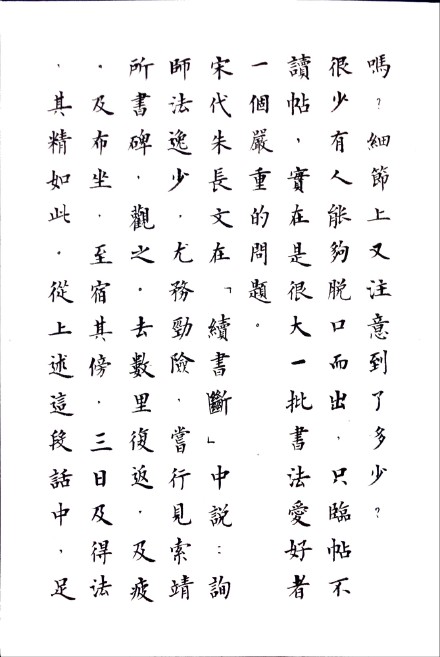 嗎？細節上又注意到了多少？
很少有人能夠脫口而出，只臨帖不
讀帖，實在是很大一批書法愛好者
一個嚴重的問題。
宋代朱長文在「續書斷」中説：詢
師法逸少，尤務勁險，嘗行見索靖
所書碑，觀之。去數里復返，及疲
。及布坐，至宿其傍，三日及得法
，其精如此。從上述這段話中，足